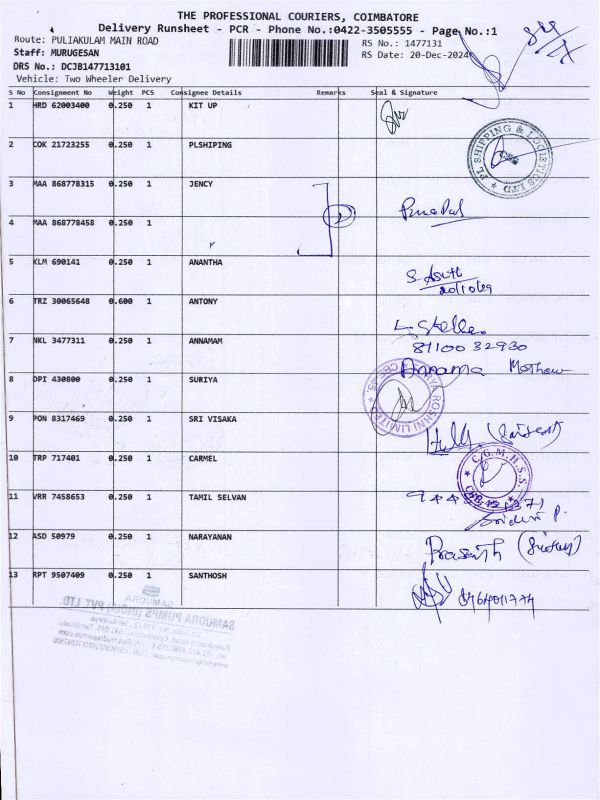 THE PROFESSIONAL COURIERS, COIMBATORE
Delivery Runsheet - PCR - Phone No.:0422-3505555 - Page No.:1
Route: PULIAKULAM MAIN ROAD RS No.: 1477131
Staff: MURUGESAN RS Date: 20-Dec-2024
DRS No.: DCJB147713101
Vehicle: Two Wheeler Delivery
S No Consignment No Weight PCS Consignee Details Remarks Seal & Signature
1 HRD 62003400 0.250 1 KIT UP
2 COK 21723255 0.250 1 PLSHIPING
PL SHIPPING & LOGISTICS LTD
3 MAA 868778315 0.250 1 JENCY
4 MAA 868778458 0.250 1
5 KLM 690141 0.250 1 ANANTHA
6 TRZ 30065648 0.600 1 ANTONY
7 NKL 3477311 0.250 1 ANNAMAM
8110032930
Annama Mathew
8 DPI 430800 0.250 1 SURIYA
ROSHNI LIMITED
9 PON 8317469 0.250 1 SRI VISAKA
10 TRP 717401 0.250 1 CARMEL
C.G.M.H.S.S.
11 VRR 7458653 0.250 1 TAMIL SELVAN
12 ASD 50979 0.250 1 NARAYANAN
Prasanth
13 RPT 9507409 0.250 1 SANTHOSH
SAMUDRA
SAMUDRA PUMPS (INDIA) PVT LTD.